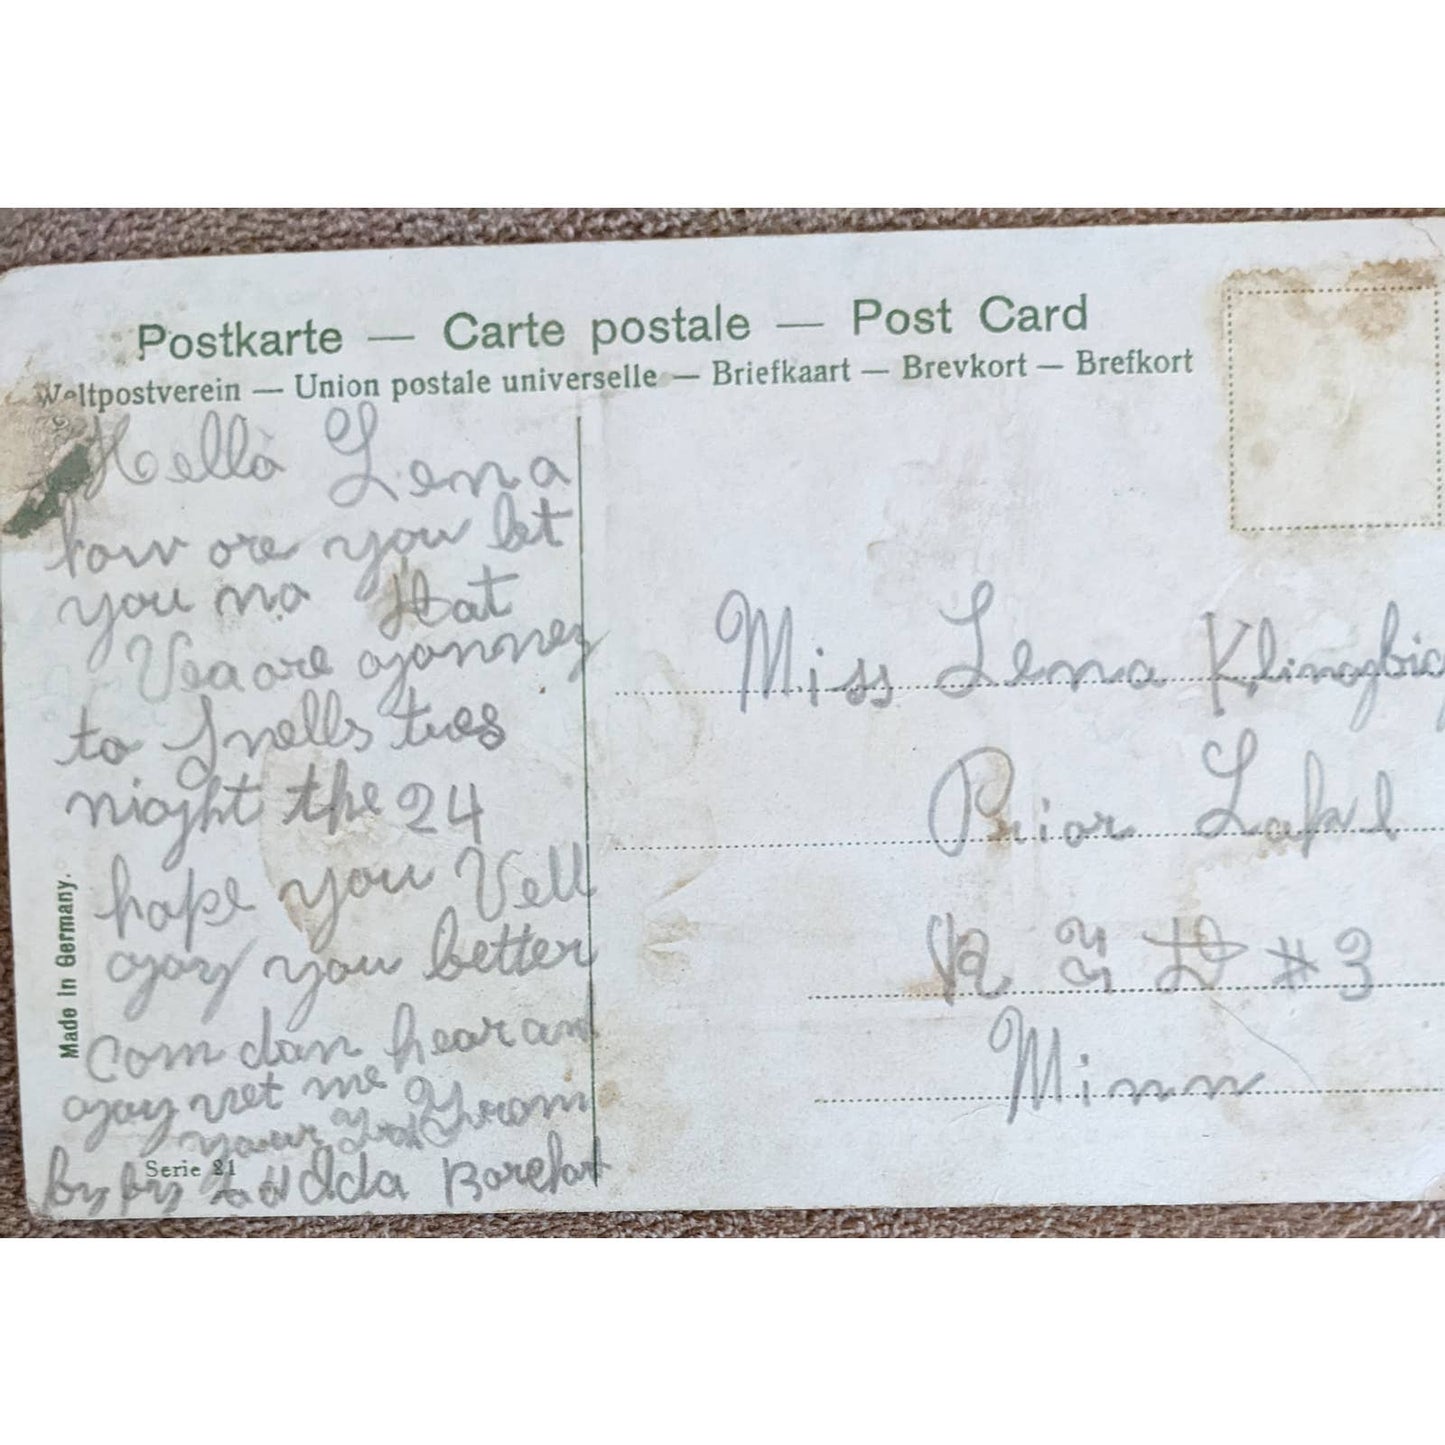 Postkarte — Carte postale — Post Card
Weltpostverein — Union postale universelle — Briefkaart — Brevkort — Brefkort
Hello Lena
how are you let
you no that
Vea are
to Snells tues
night the 24
hope you Vell
you better
com dan hear an
vet me
your From
by by Borchart
Made in Germany.
Serie 21
Miss Lena
Prior Lake
R F D # 3
Minn